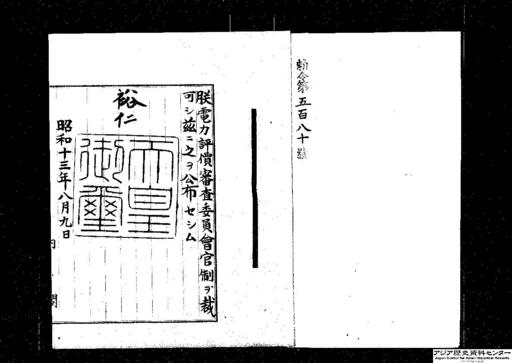 勅令第五百八十號
朕電力評價審査委員會官制ヲ裁
可シ茲ニ之ヲ公布セシム
裕仁
天皇
御璽
昭和十三年八月九日
内閣
アジア歴史資料センター
Japan Center for Asian Historical Records